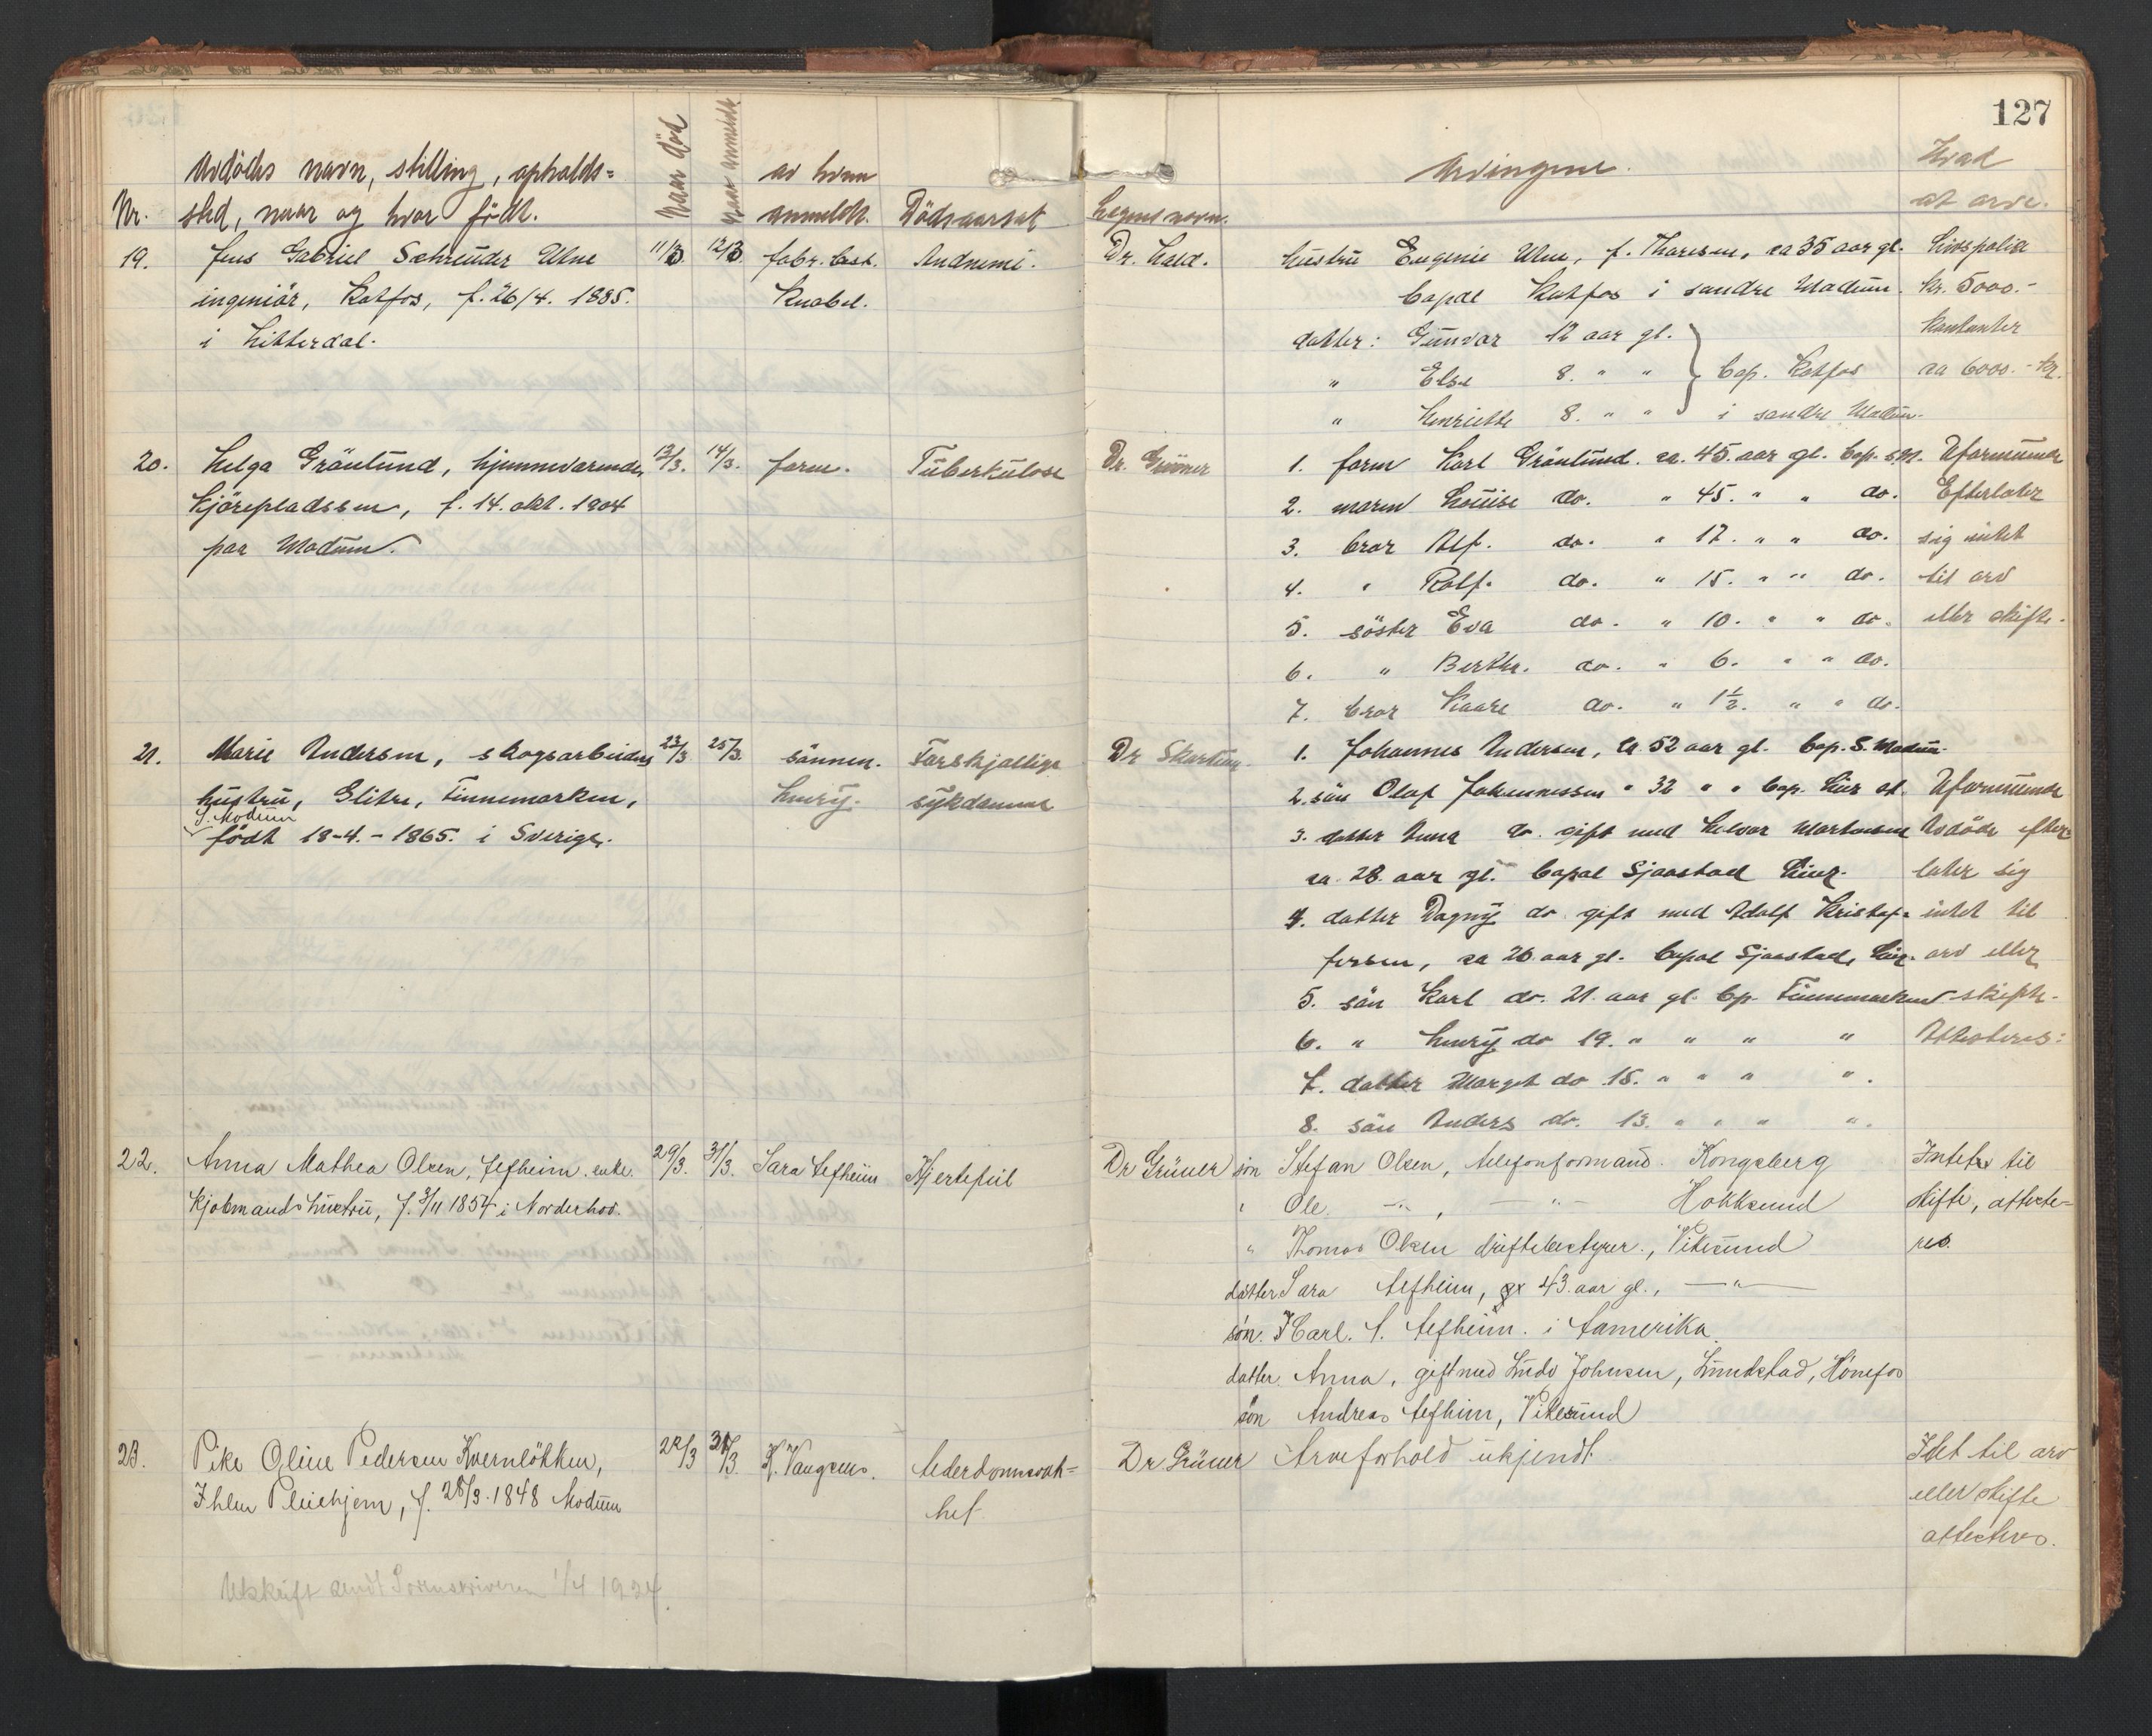 127
Avdödes navn, stilling, opholds=
Nr. sted, naar og hvor födt.
Naar död
Naar anmeldt
av hvem
anmeldt.
Dödsaarsak
Lægens navn.
Arvingene.
Hvad
at arve.
19. Jens Gabriel Schreuder Ulne 11/3. 12/3 fabr. best. Anæmi. Dr. Hald.
ingeniör, Katfos, f. 26/4. 1885. Knobel.
i Hitterdal.
hustru Eugenie Ulne, f. Thoresen, ca 35 aar gl. Livspolise
bopæl Katfos i söndre Modum. kr. 5000.-
datter: Gunvor 12 aar gl. Kontanter
" Else 8. " " bop. Katfos ca 6000.- kr.
" Henriette 8. " " i söndre Modum.
20. Helga Grönlund, hjemmeværende, 13/3. 14/3. faren. Tuberkulose Dr. Grüner
Kjörepladssen, f. 14. okt. 1904
paa Modum.
1. faren Karl Grönlund. ca. 45. aar gl. bop. S.M. Uformuende
2. moren Louise do. " 45. " " do. Efterlater
3. bror Alf. do. " 17. " " do. sig intet
4. " Rolf. do. " 15. " " do. til arv
5. söster Eva do. " 10. " " do. eller skifte.
6. " Berthe. do. " 6. " " do.
7. bror Kaare do. " 1½. " " do.
21. Marie Andersen, skogsarbeiders 23/3 25/3. sönnen. Forskjellige Dr
hustru, Glitre, Finnemarken, Henry. sykdomme
S. Modum
födt 18-4.-1865. i Sverige.
1. Johannes Andersen, ca 52 aar gl. bop. S. Modum.
2. sön Olaf Johannessen " 32 " " bop. Lier st. Uformuende
3. datter Anna do. gift med Halvor Martinsen Avdöde efter=
ca. 28. aar gl. bopæl Sjaastad Lier. later sig
4. datter Dagny do gift med Adolf Kristof= intet til
fersen, ca 26 aar gl. bopæl Sjaastad, Lier. arv eller
5. sön Karl do. 21. aar gl. bp. Finnemarken skifte.
6. " Henry do 19. " " " " Attesteres:
7. datter Margit do 15. " " " ".
8. sön Anders do. 13. " " " ".
22. Anna Mathea Olsen, Aefheim. enke. 29/3. 31/3. Sara Aefheim Hjertefeil Dr Grüner
Kjöbmands hustru, f. 3/11 1854 i Norderhov.
sön Stefan Olsen, telefonformand. Kongsberg Intet til
" Ole -"-, -"- Hokksund skifte, atteste=
" Thomas Olsen driftsbestyrer., Vikesund res.
datter Sara Aefheim, 43. aar gl., -"-
sön. Harl. A. Aefheim. i Aamerika.
datter. Anna, gift med Ludv Johnsen, Lundstad, Hönefos
sön Andreas Aefheim, Vikesund
23. Pike Oline Pedersen Kvernløkken, 22/3 31/3. K. Vangsnes. Aederdomssvak= Dr Grüner Arveforhold ukjendt. Itet til arv
Ihlen Pleiehjem, f. 28/3. 1848 Modum het eller skifte
attesteres.
Utskrift sendt Sorenskriveren 1/4 1924.